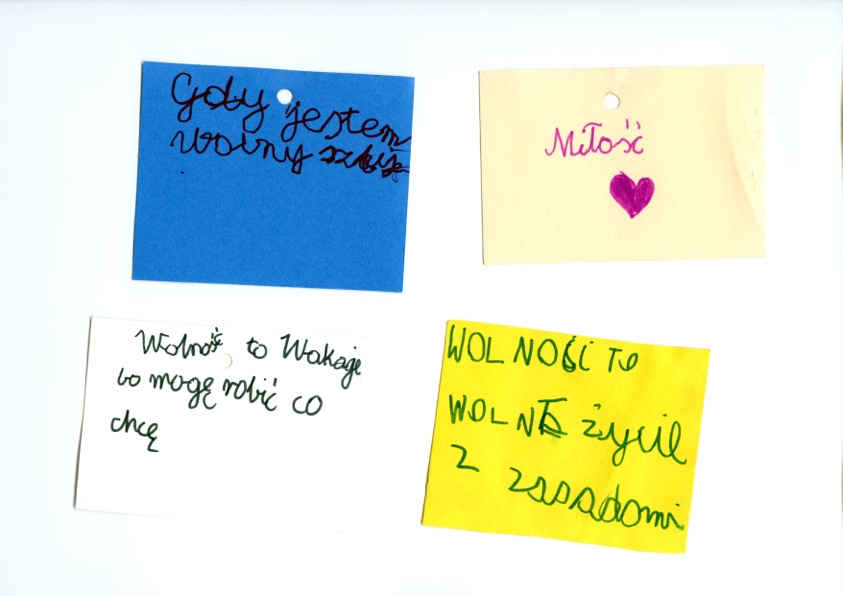 Gdy jestem
wolny
Miłość
Wolność to Wakacje
bo mogę robić co
chcę
WOLNOŚĆ TO
WOLNE życie
z zasadami